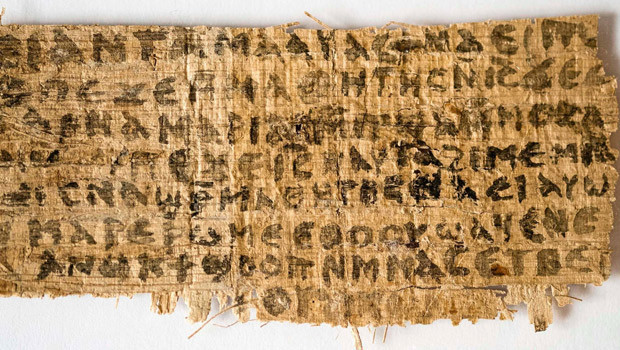 ⲉⲓ ⲁⲛ ⲧⲁⲙⲁⲁⲩ ⲁⲥϯ ⲛⲁⲉⲓ ⲡⲱ
ⲥ ⲡⲉϫⲉ ⲙⲙⲁⲑⲏⲧⲏⲥ ⲛⲓ̅ⲥ̅ ϫⲉ ⲥ
ⲁⲣⲛⲁ ⲙⲁⲣⲓⲁⲙ ⲙⲡϣⲁ ⲙⲙⲟⲥ ⲁ
ⲡⲉϫⲉ ⲓ̅ⲥ̅ ⲛⲁⲩ ⲧⲁϩⲓⲙⲉ ⲙⲛ
ⲥⲛⲁϣⲣⲙⲁⲑⲏⲧⲏⲥ ⲛⲁⲉⲓ ⲁⲩⲱ
ⲙⲁⲣⲉⲣⲱⲙⲉ ⲉⲑⲟⲟⲩ ϣⲁϥⲉ ⲛⲉ
ⲁⲛⲟⲕ ϯϣⲟⲟⲡ ⲛⲙⲙⲁⲥ ⲉⲧⲃⲉ